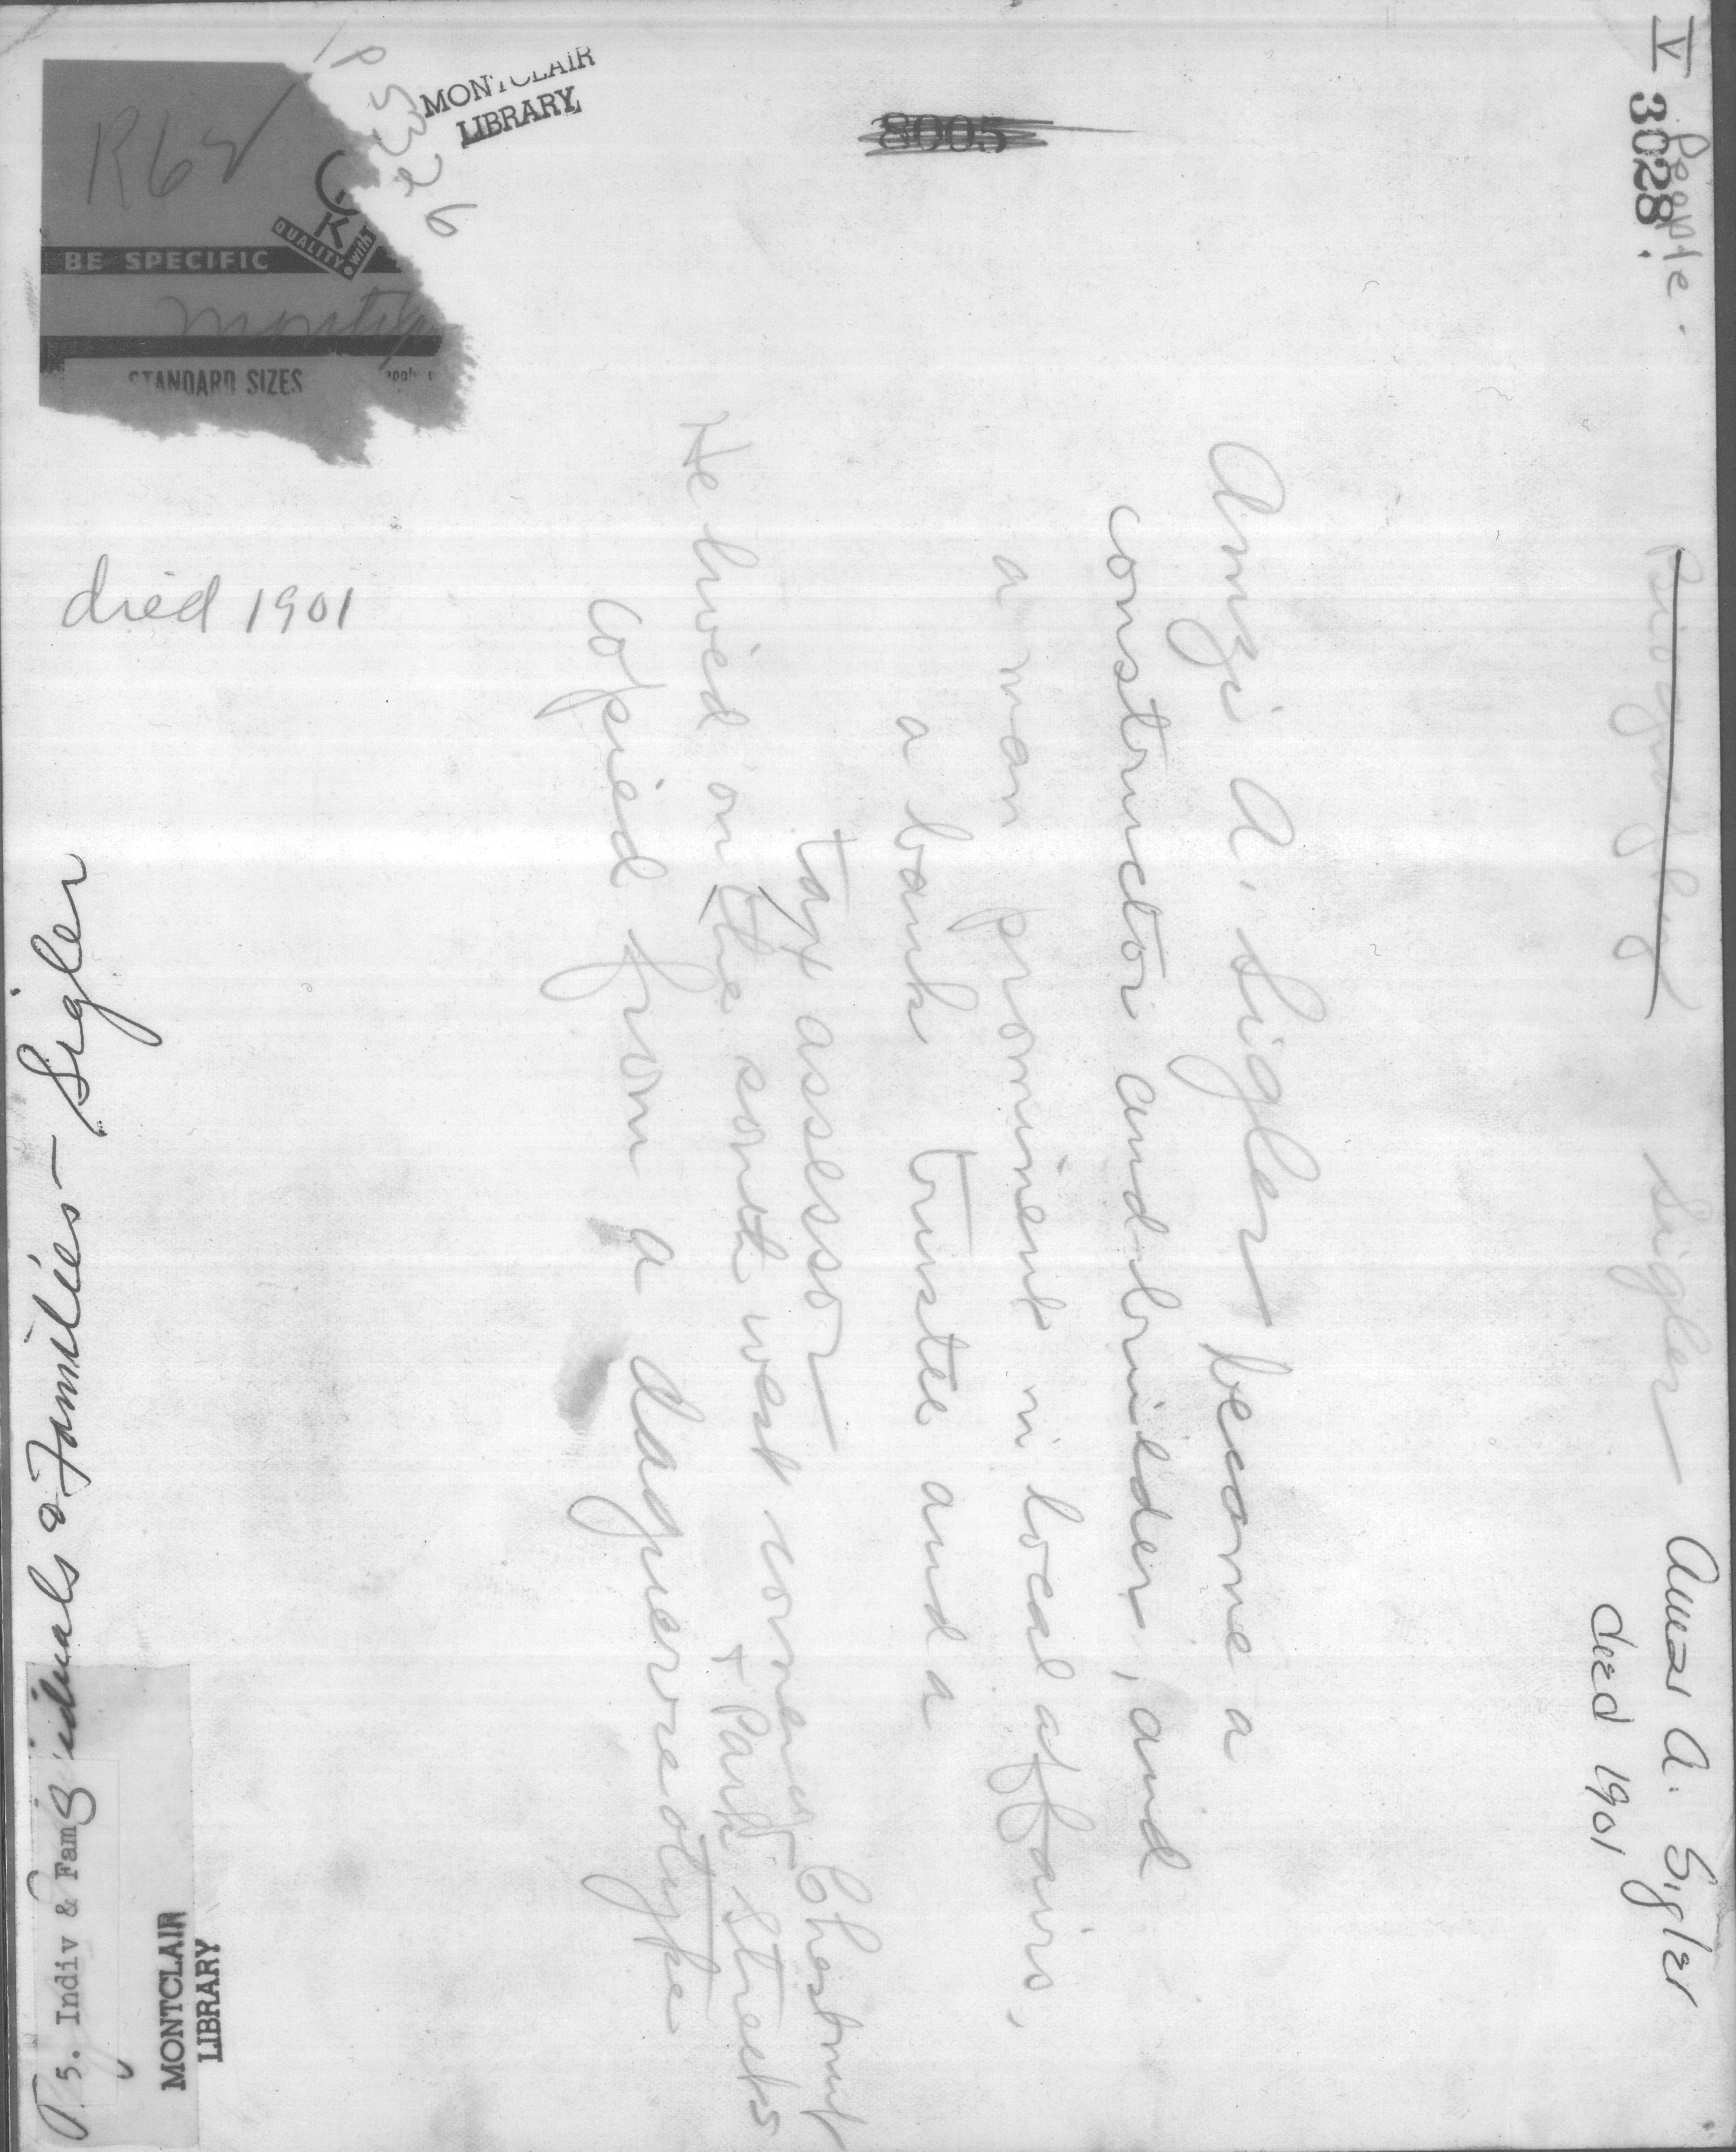 V 3028.
People.
Sigler
Amzi A. Sigler
died 1901
Amzi A. Sigler became a
constructor and builder, and
a man prominent in local affairs,
a bank trustee and a
tax assessor
He lived on the south west corner Chestnut
+ Park Streets
Copied from a daguerreotype
8005
MONTCLAIR
LIBRARY
P 5326
R62
QUALITY with
BE SPECIFIC
STANDARD SIZES
died 1901
Individuals & Families - Sigler
5. Indiv & Fam
MONTCLAIR
LIBRARY